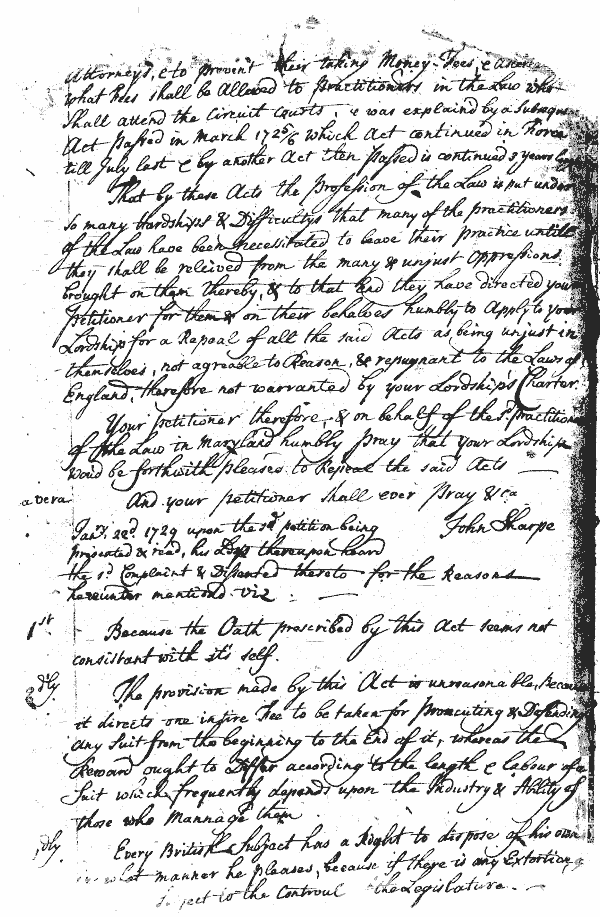 Attorneys, & to prevent their taking Money-Fees, &
what Fees shall be Allowed to Practitioners in the Law who
Shall attend the Circuit Courts, & was explaind by a Subsequ
Act passed in March 1725/6 which Act continued in Force
till July last & by another Act then passed is continued 3 years
That by these Acts the Profession of the Law is put under
so many Hardships & Difficultys that many of the practitioners
of the Law have been necessitated to leave their practice untill
they shall be releived from the many & unjust Oppressions
brought on them thereby, & to that End they have directed your
Petitioner for them & on their behalves humbly to Apply to your
Lordship for a Repeal of all the said Acts as being unjust in
themselves, not agreable to Reason, & repugnant to the Laws of
England, therefore not warranted by your Lordship's Charter.
Your petitioner therefore, & on behalf of the sd. practition
of the Law in Maryland humbly pray that your Lordship
woud be forthwith pleased to Repeal the said Acts —
a vera
And your petitioner shall ever Pray & ca
Jany. 22d. 1729 upon the sd. petition being John Sharpe
presented & read, his Ldp thereupon heard
the sd. Complaint & Dissented thereto for the Reasons
hereunder mentiond viz. —
1st Because the Oath prescribed by this Act seems not
consistant with it's self.
2dly The provision made by this Act is unreasonable, Because
it directs one intire Fee to be taken for Prosecuting & Defending
any Suit from the beginning to the End of it, whereas the
Reward ought to Differ according to the length & labour of a
Suit which frequently depends upon the Industry & Ability of
those who Mannage them
dly Every British Subject has a Right to dispose of his own
in what manner he pleases, because if there is any Extortion
Subject to the Controul the Legislature. —